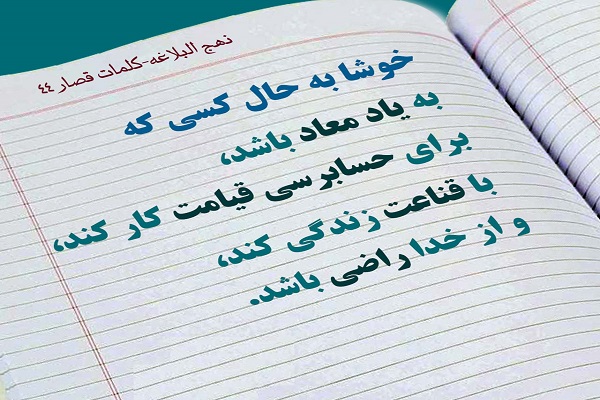 نهج البلاغه-کلمات قصار ۴۴
خوشا به حال کسی که
به یاد معاد باشد،
برای حسابرسی قیامت کار کند،
با قناعت زندگی کند،
و از خدا راضی باشد.